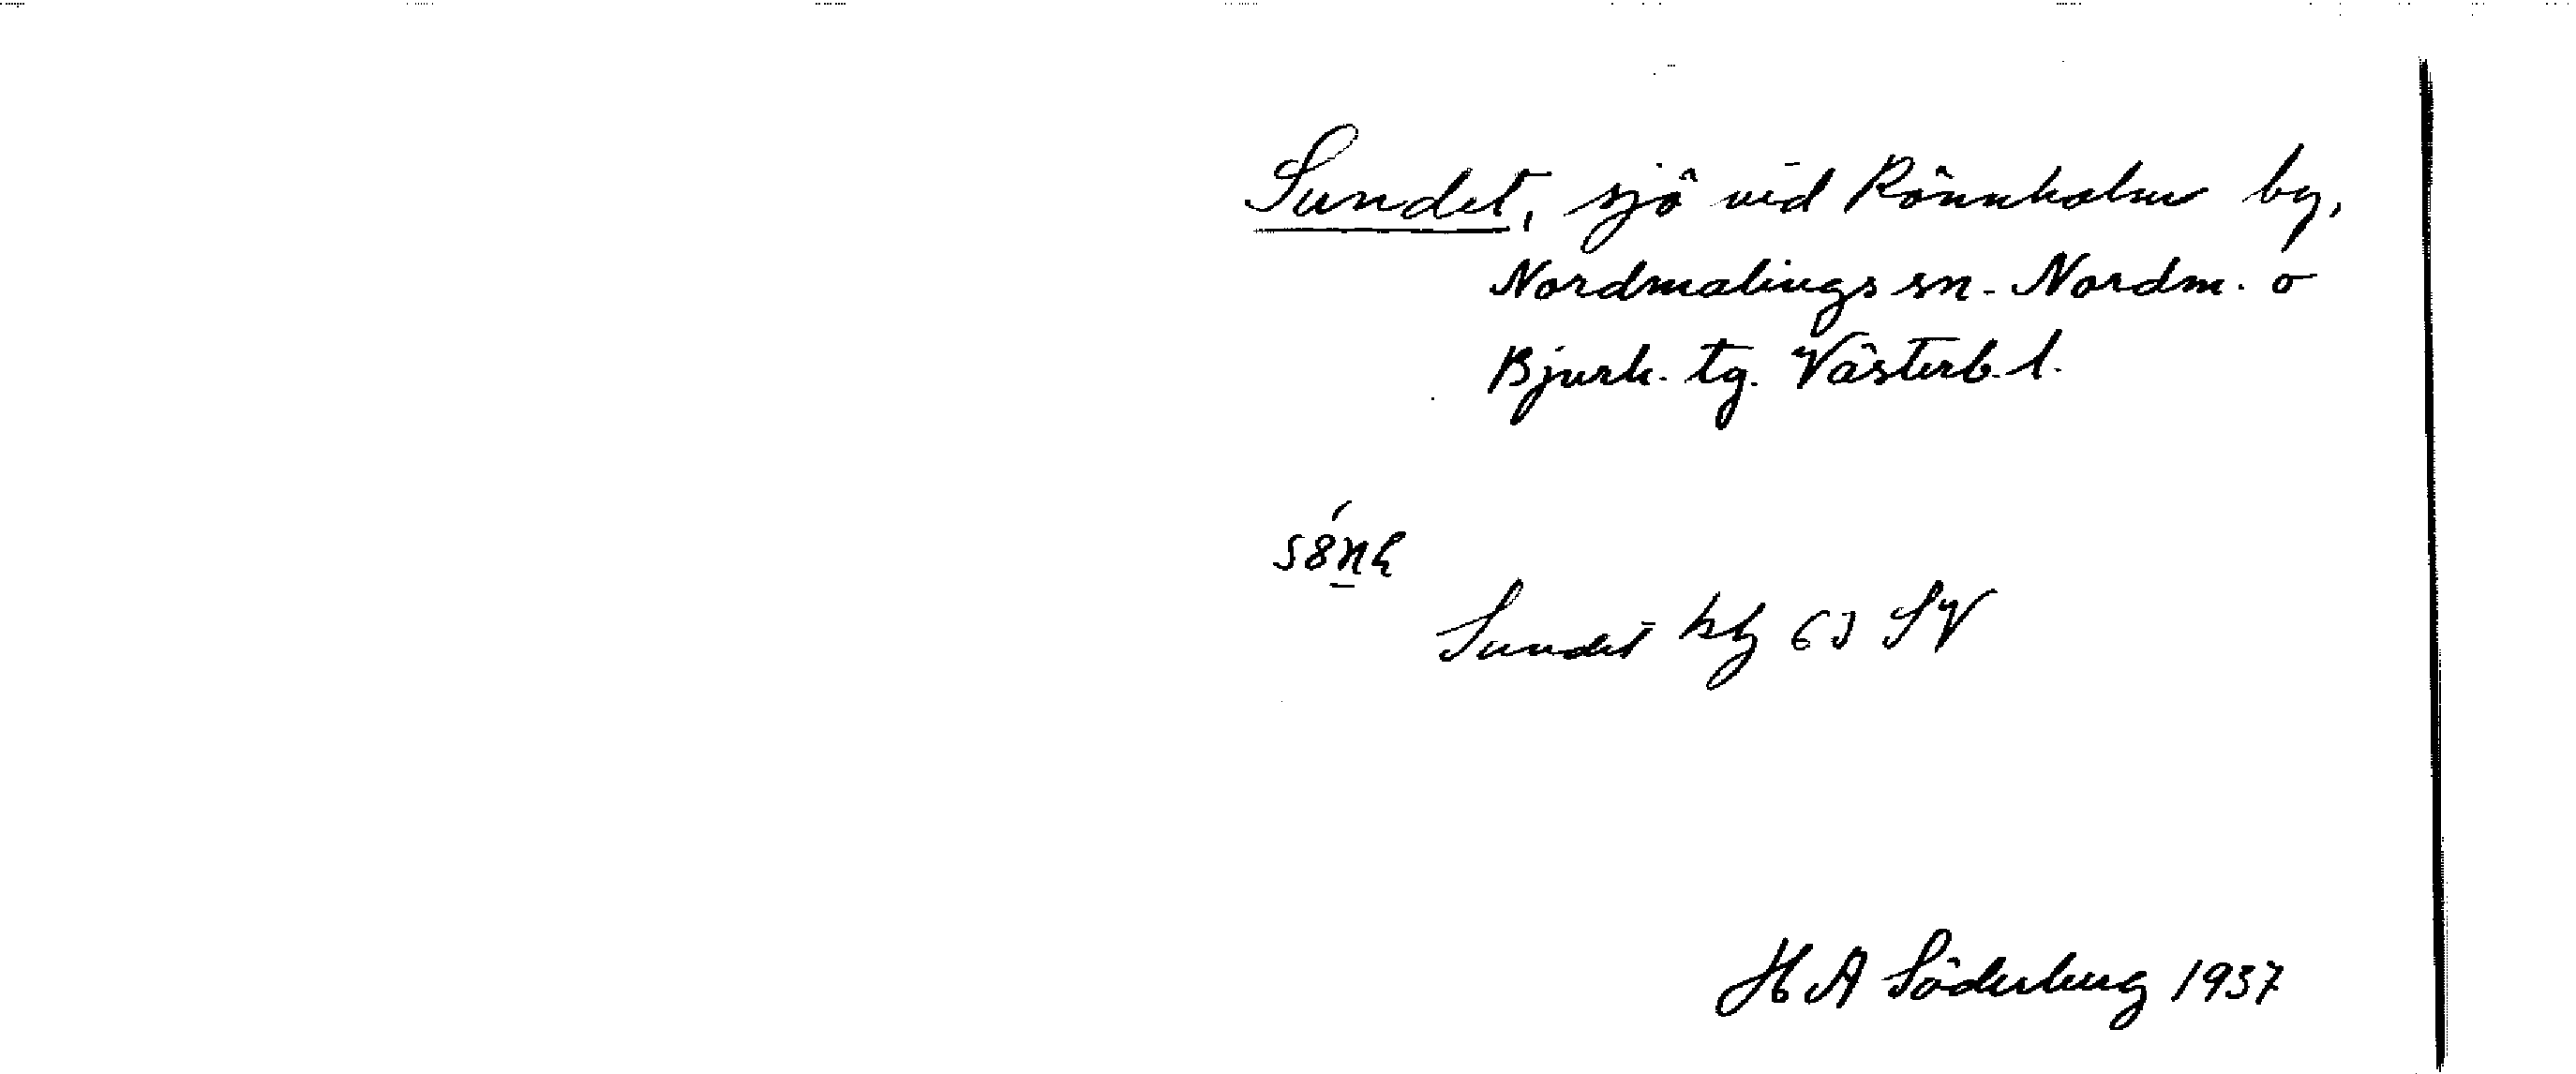 Sundet, sjö vid Rönnholm by,
Nordmalings sn. Nordm. o
Bjurh. tg. Västerb. l.
Sundet kbl 63 SV
H A Söderberg 1937